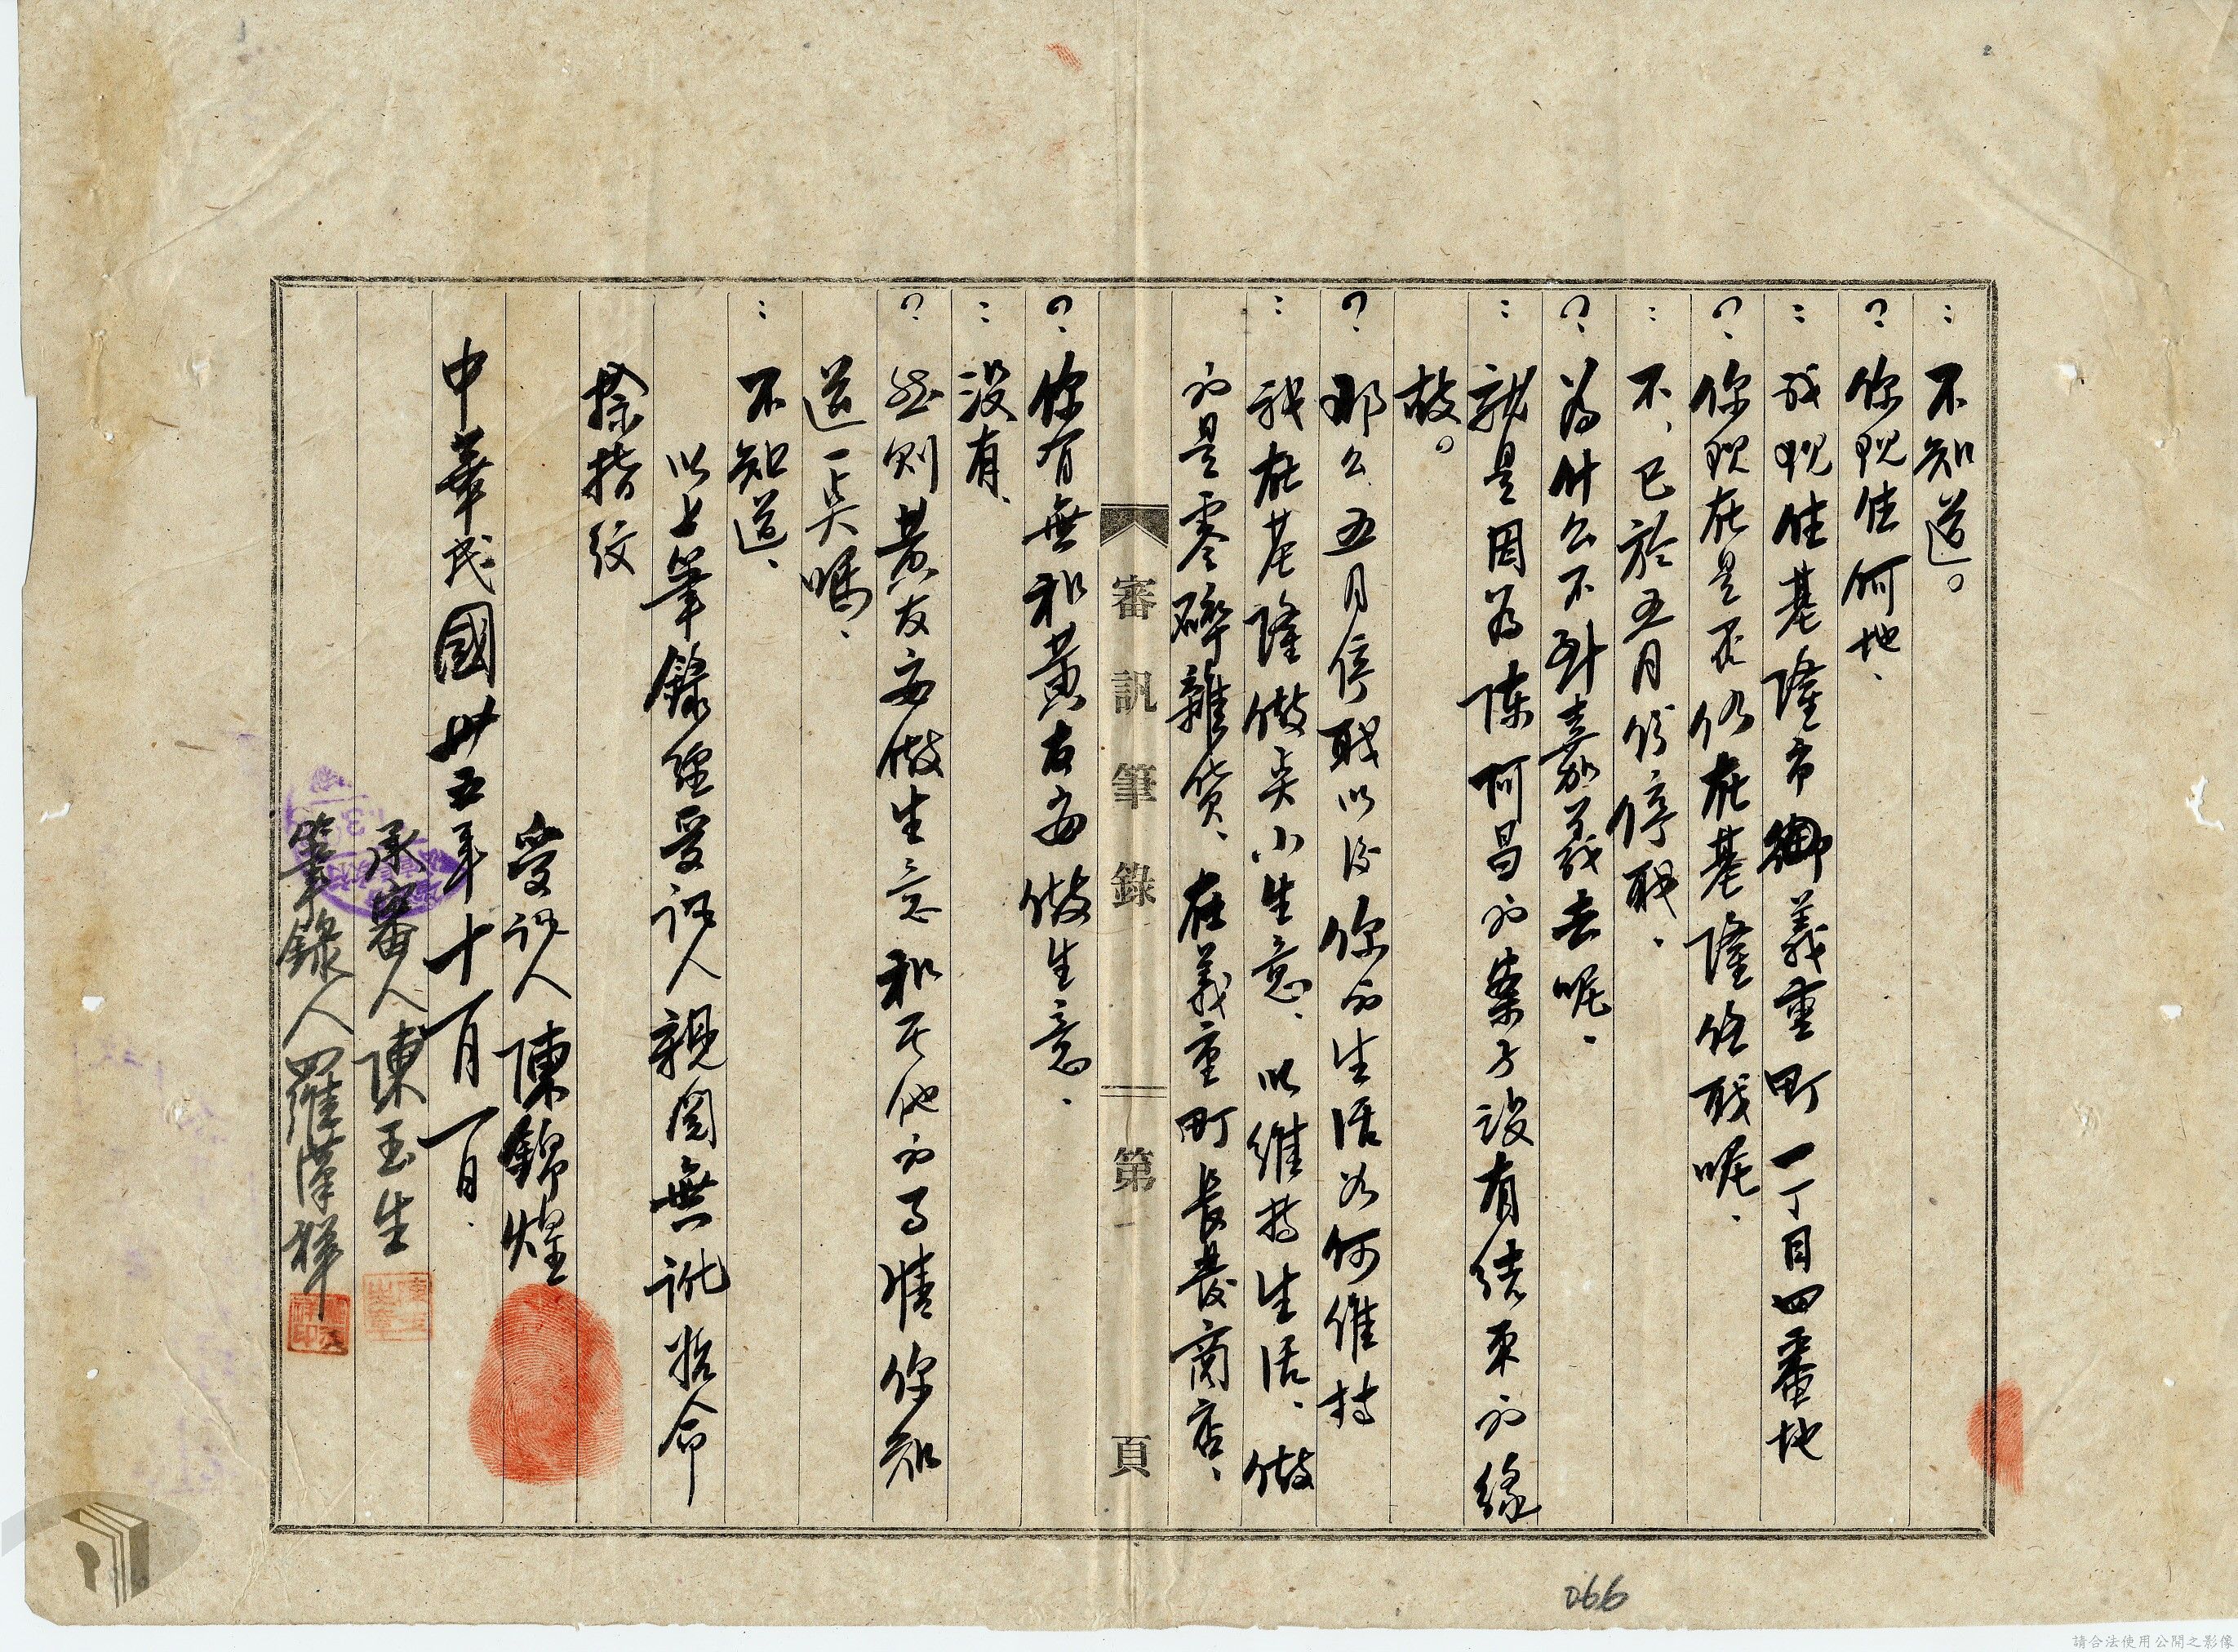 : 不知道。
? 你現住何地、
: 我現住基隆市御義重町一丁目四番地
? 你現在是否仍在基隆任職呢、
: 不、已於五月份停職、
? 為什么不到嘉義去呢、
: 就是因為陳阿昌的案子沒有結束的緣
故。
? 那么五月停職以後你的生活如何維持
: 我在基隆做点小生意、以維持生活、做
的是零碎雜貨、在義重町長發商店、
審訊筆錄 第 頁
? 你有無和黃友安做生意、
: 沒有、
? 然則黃友安做生意和其他的事情你知
道一点嗎、
: 不知道、
以上筆錄經受訊人親閱無訛拾命
捺指紋
受訊人 陳錦煌
中華民國卅五年十一月一日、
承審人 陳玉生
筆錄人 羅漢祥
066
請合法使用公開之影像